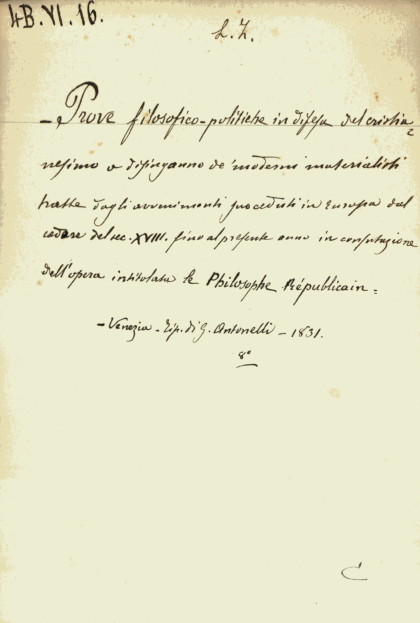 4B.VI.16.
L. Z.
- Prove filosofico-politiche in difesa del cristia=
nesimo a disinganno de' moderni materialisti
tratte dagli avvenimenti succeduti in Europa dal
cadere del sec. XVIII. fino al presente anno in confutazione
dell'opera intitolata le Philosophe Républicain =
- Venezia - Tip. di G. Antonelli - 1831.
8°